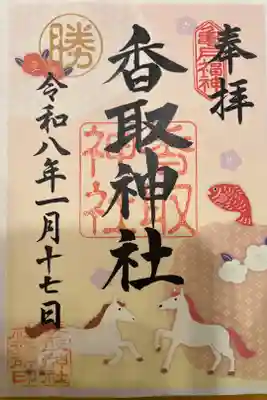 奉拝
亀戸福神
香取神社
香取神社
勝
令和八年一月十七日